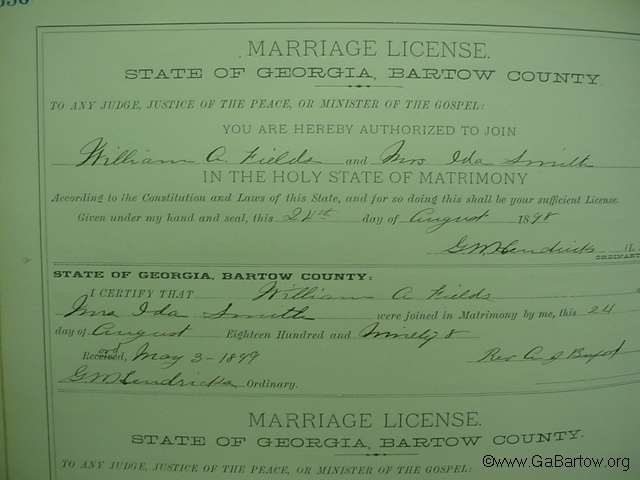 MARRIAGE LICENSE.
STATE OF GEORGIA, BARTOW COUNTY.
TO ANY JUDGE, JUSTICE OF THE PEACE, OR MINISTER OF THE GOSPEL:
YOU ARE HEREBY AUTHORIZED TO JOIN
William A Fields and Mrs Ida Smith
IN THE HOLY STATE OF MATRIMONY
According to the Constitution and Laws of this State, and for so doing this shall be your sufficient License.
Given under my hand and seal, this 24th day of August 1898
G W Hendricks (L.
ORDINARY
STATE OF GEORGIA, BARTOW COUNTY:
I CERTIFY THAT William A Fields
Mrs Ida Smith were joined in Matrimony by me, this 24
day of August Eighteen Hundred and Ninety 8
Received, May 3-1899 Rev
G W Hendricks Ordinary.
MARRIAGE LICENSE.
STATE OF GEORGIA, BARTOW COUNTY.
TO ANY JUDGE, JUSTICE OF THE PEACE, OR MINISTER OF THE GOSPEL:
©www.GaBartow.org